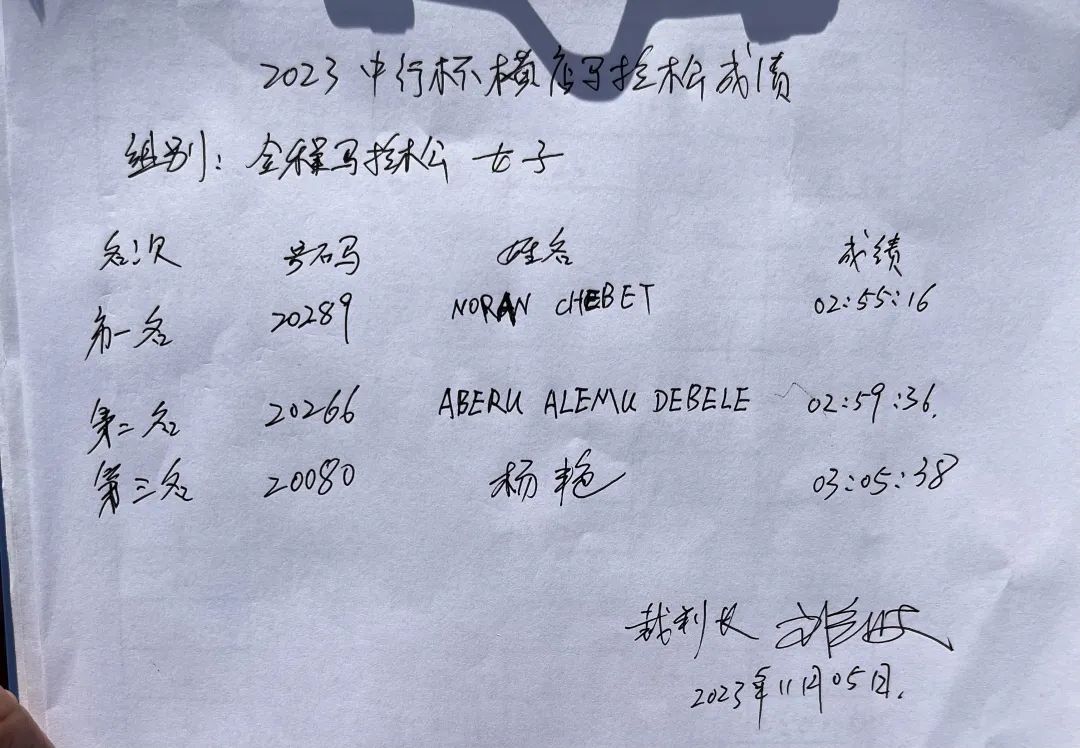 2023中行杯横店马拉松成绩
组别：全程马拉松 女子
名次 号码 姓名 成绩
第一名 20289 NORAN CHEBET 02:55:16
第二名 20266 ABERU ALEMU DEBELE 02:59:36.
第三名 20080 杨艳 03:05:38
裁判长
2023年11月05日.